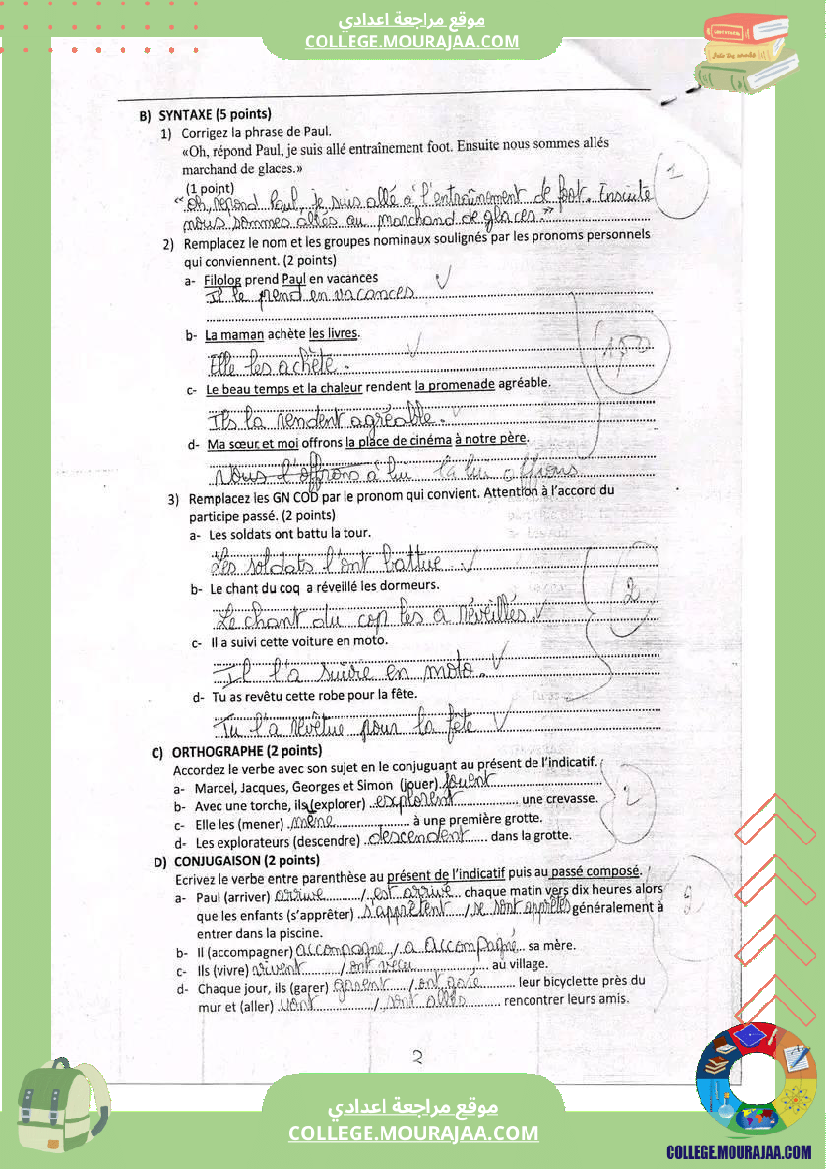 موقع مراجعة اعدادي
COLLEGE.MOURAJAA.COM
B) SYNTAXE (5 points)
1) Corrigez la phrase de Paul.
«Oh, répond Paul, je suis allé entraînement foot. Ensuite nous sommes allés
marchand de glaces.»
(1 point)
1
"Oh, répond Paul, je suis allé à l'entraînement de foot. Ensuite
nous sommes allés au marchand de glaces."
2) Remplacez le nom et les groupes nominaux soulignés par les pronoms personnels
qui conviennent. (2 points)
a- Filolog prend Paul en vacances
Il le prend en vacances
b- La maman achète les livres.
Elle les achète.
c- Le beau temps et la chaleur rendent la promenade agréable.
Ils la rendent agréable.
d- Ma sœur et moi offrons la place de cinéma à notre père.
Nous l'offrons à lui la lui offrons
3) Remplacez les GN COD par le pronom qui convient. Attention à l'accord du
participe passé. (2 points)
a- Les soldats ont battu la tour.
Les soldats l'ont battue
b- Le chant du coq a réveillé les dormeurs.
Le chant du coq les a réveillés
2
c- Il a suivi cette voiture en moto.
Il l'a suivie en moto.
d- Tu as revêtu cette robe pour la fête.
Tu l'a revêtue pour la fête
C) ORTHOGRAPHE (2 points)
Accordez le verbe avec son sujet en le conjuguant au présent de l'indicatif.
a- Marcel, Jacques, Georges et Simon (jouer) jouent
b- Avec une torche, ils (explorer) explorent une crevasse.
2
c- Elle les (mener) mène à une première grotte.
d- Les explorateurs (descendre) descendent dans la grotte.
D) CONJUGAISON (2 points)
Ecrivez le verbe entre parenthèse au présent de l'indicatif puis au passé composé.
a- Paul (arriver) arrive / est arrivé chaque matin vers dix heures alors
que les enfants (s'apprêter) s'apprêtent / se sont apprêtés généralement à
entrer dans la piscine.
b- Il (accompagner) accompagne / a accompagné sa mère.
c- Ils (vivre) vivent / ont vécu au village.
d- Chaque jour, ils (garer) garent / ont garé leur bicyclette près du
mur et (aller) vont / sont allés rencontrer leurs amis.
2
موقع مراجعة اعدادي
COLLEGE.MOURAJAA.COM
COLLEGE.MOURAJAA.COM